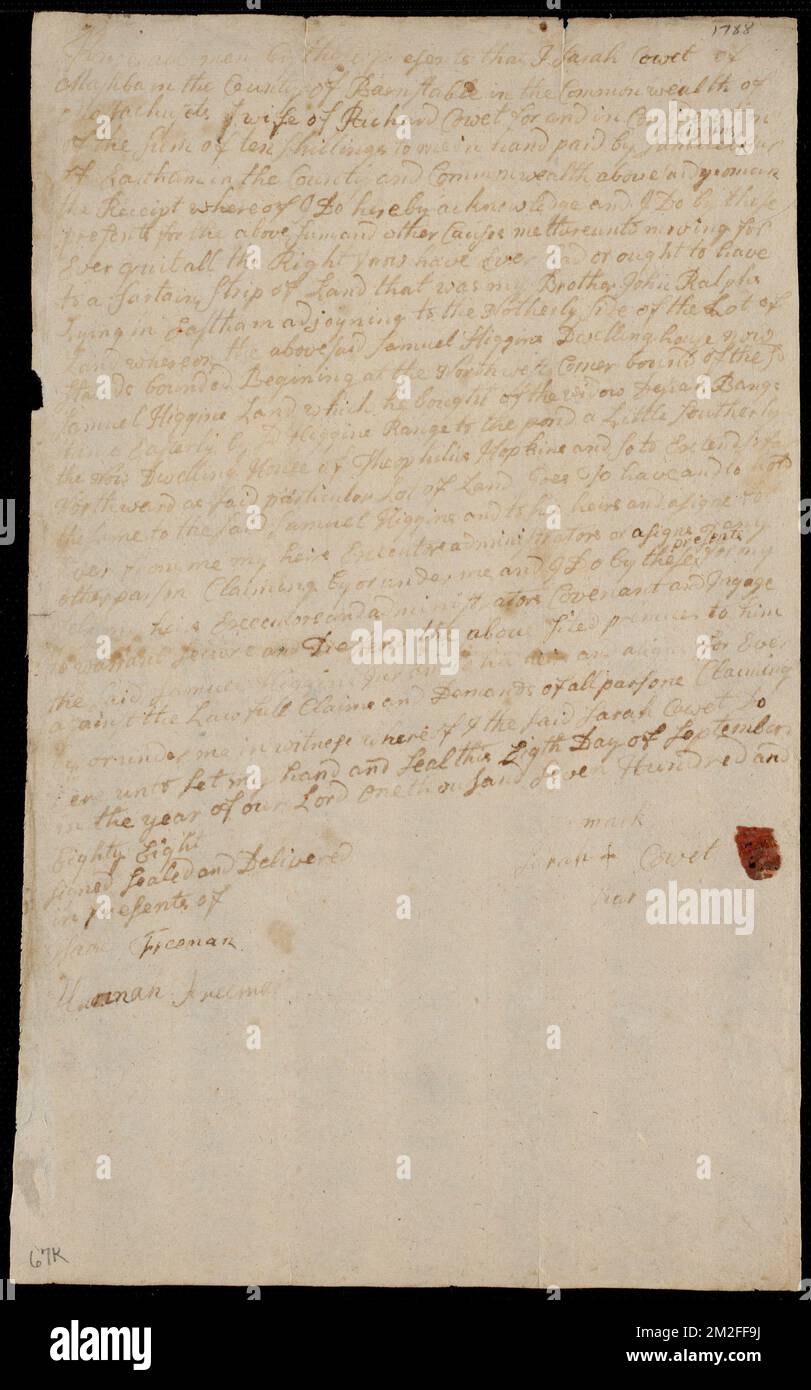 1788
Know all men by these presents that I Sarah Cowet of
Mashbam the County of Barnstable in the Common wealth of
Masachusets & wife of Richard Cowet for and in Consideration
of the Sum of ten shillings to me in hand paid by Samuel Higgins
of Eastham in the County and Commonwealth above said yeoman
the Receipt whereof I Do hereby acknowledge and I Do by these
presents for the above sum and other Causes me thereunto moving for
Ever quit all the Right I now have Ever had or ought to have
to a Sartain Strip of Land that was my Brother John Ralphs
Lying in Eastham adjoyning to the Notherly Side of the Lot of
Land whereon the above said Samuel Higgins Dwelling house now
stands bounded Begining at the Northwest Corner bound of the sd
Samuel Higgins Land which he bought of the widow Bangs
Easterly by sd Higgins Range to the pond a Little Southerly
the now Dwelling House of Theophilus Hopkins and so to Extend so far
Northward as said particular Lot of Land Goes To have and to hold
the same to the said Samuel Higgins and to his heirs and asigns for
Ever from me my heirs Executors administrators or asigns or any
presents
other parson Claiming by or under me and I Do by these for my
heirs Executors and administrators Covenant and Ingage
to warrant secure and Defend the above said premises to him
the said Samuel Higgins his heirs and asigns for Ever
against the Lawfull Claims and Demands of all parsons Claiming
by or under me in witness whereof I the said Sarah Cowet Do
here unto set my hand and Seal this Eigth Day of September
in the year of our Lord One thousand Seven Hundred and
Eighty Eight
Signed Sealed and Delivered
in presents of
mark
Sarah + Cowet
har
Isaac Freeman
Hannah Freeman
67K
a
alamy
Image ID: 2M2FF9J
www.alamy.com